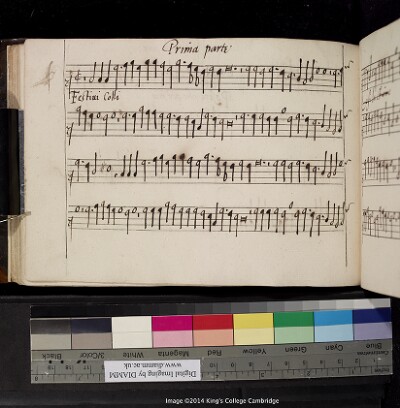 Prima parte
Festiui Colli
Blue
Cyan
Green
Yellow
Red
Magenta
White
3/Color
Black
Digital Imaging by DIAMM
www.diamm.ac.uk
Image ©2014 King's College Cambridge